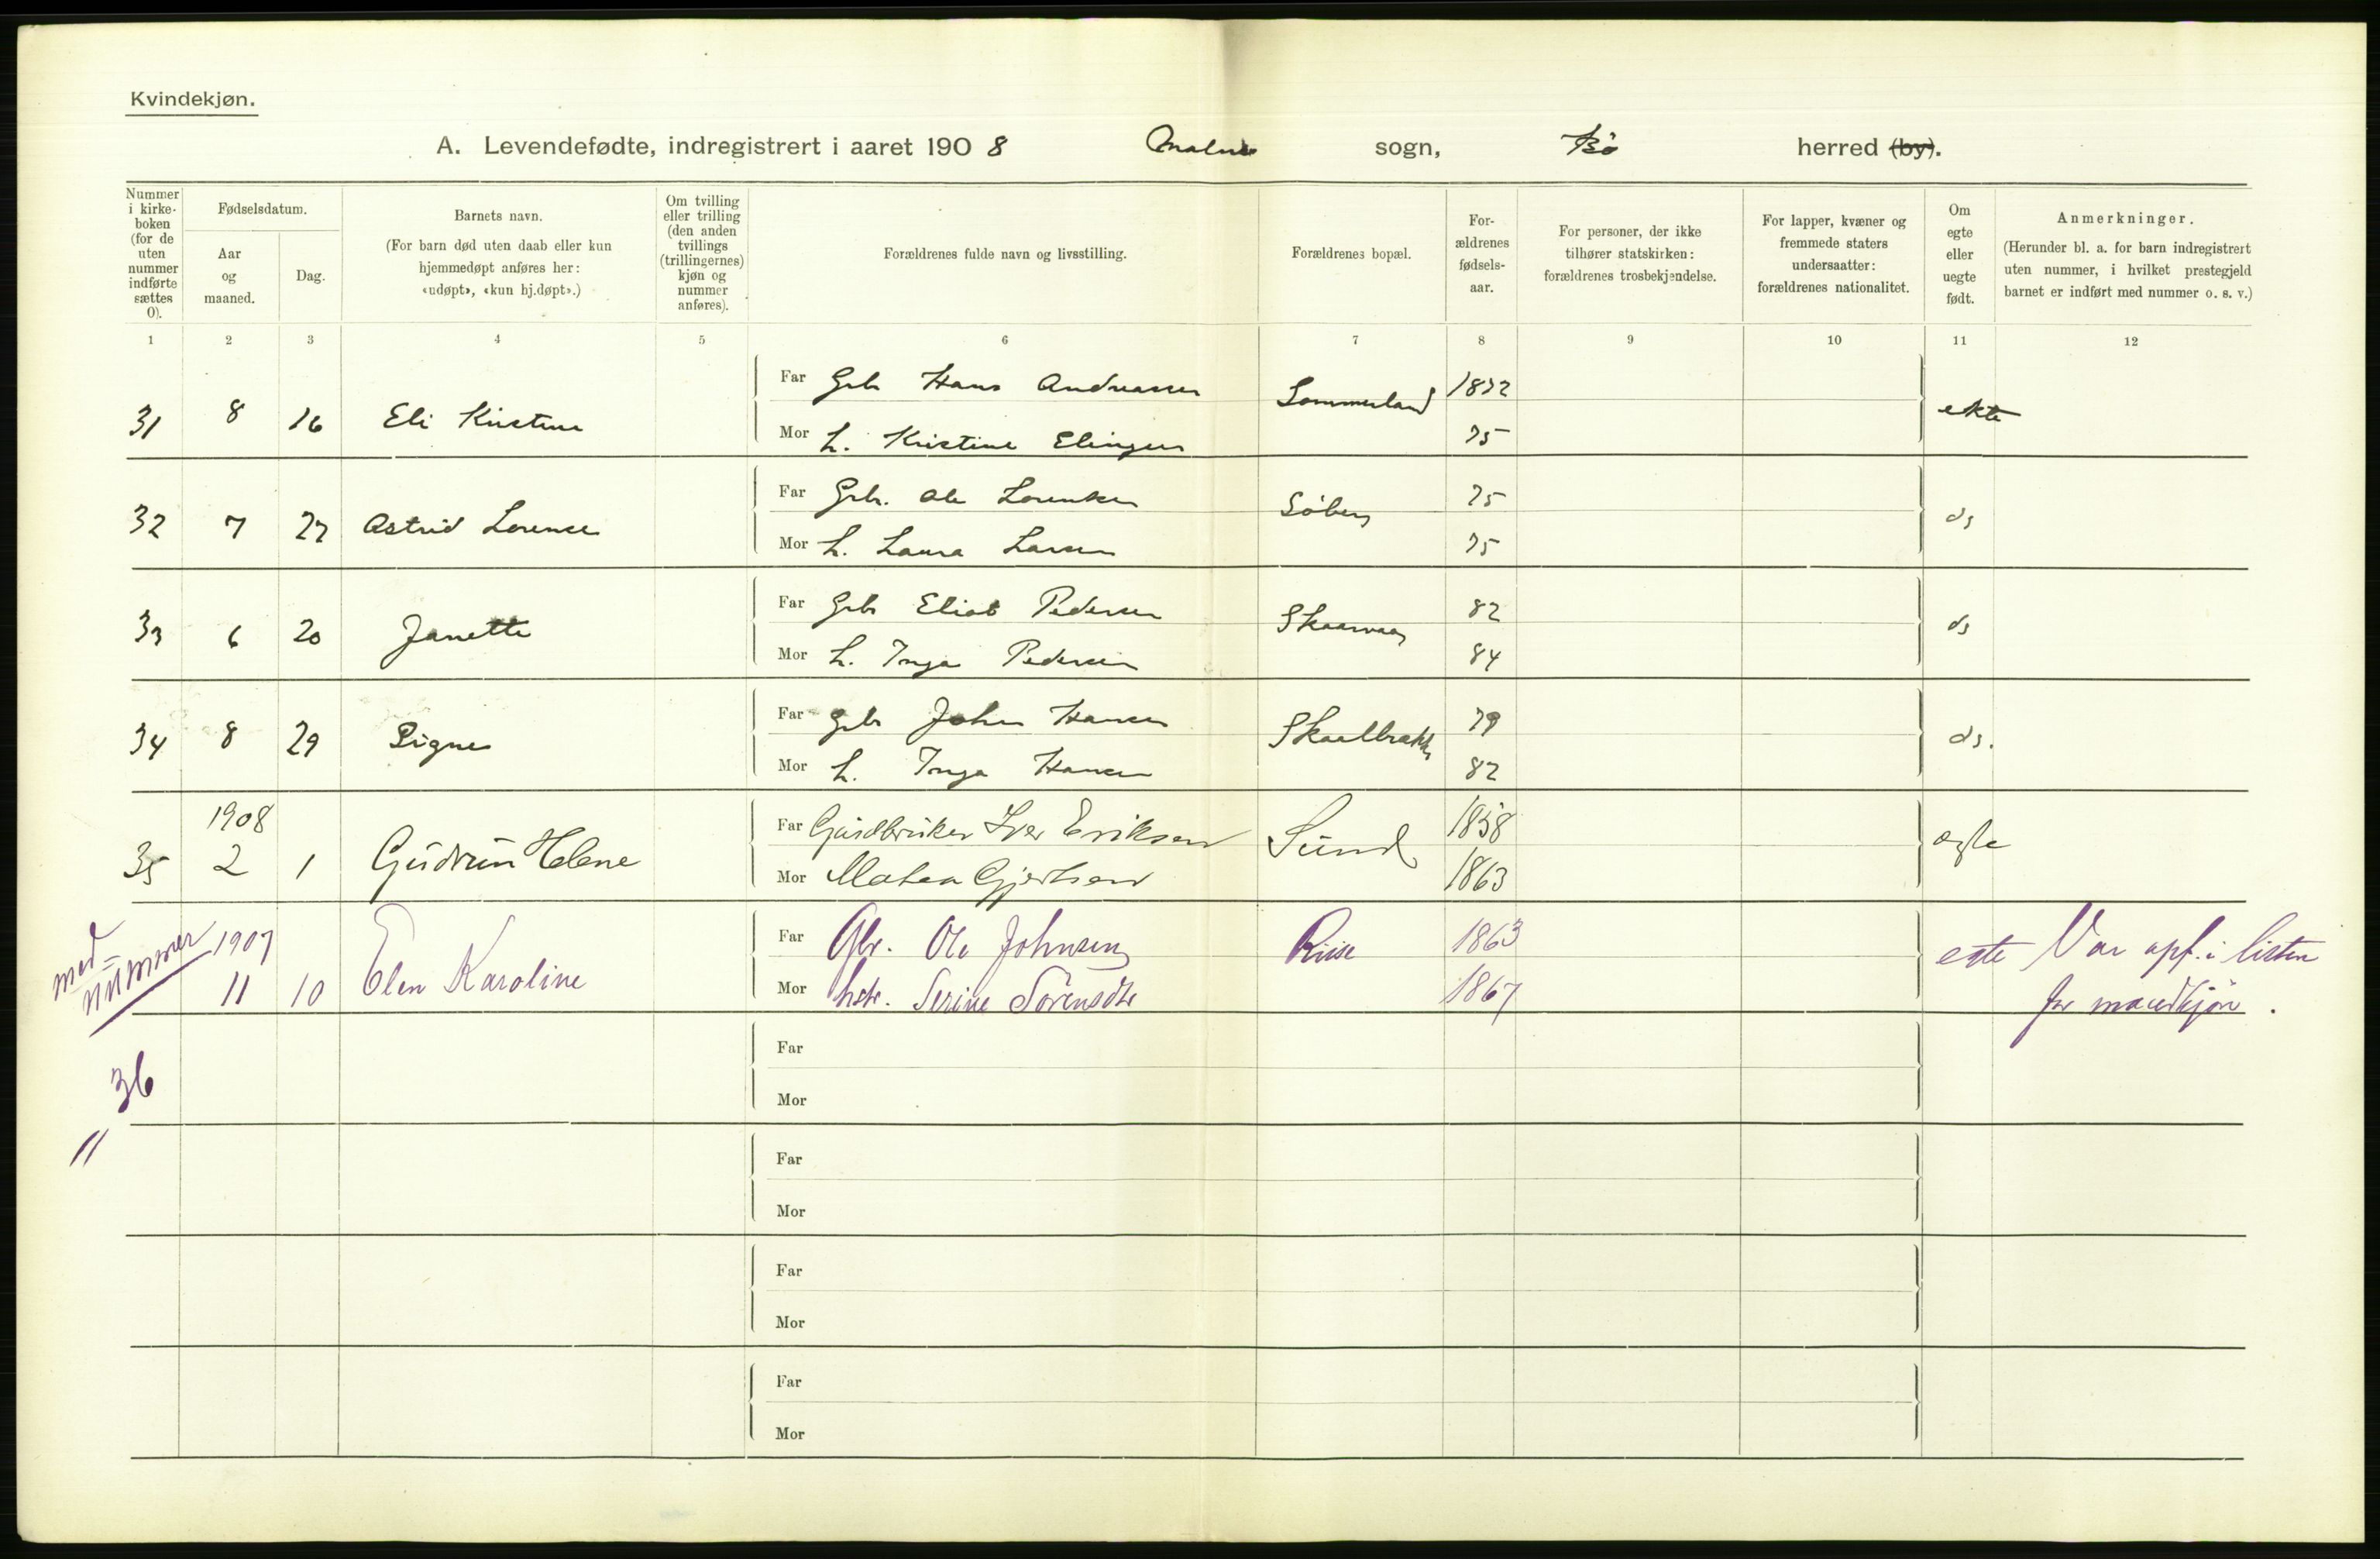 Kvindekjøn.
A. Levendefødte, indregistrert i aaret 1908 Malnes sogn, Bø herred (by).
Nummer i kirke-boken (for de uten nummer indførte sættes 0).
Fødselsdatum.
Aar og maaned.
Dag.
Barnets navn.
(For barn død uten daab eller kun hjemmedøpt anføres her: «udøpt», «kun hj.døpt».)
Om tvilling eller trilling (den anden tvillings (trillingernes) kjøn og nummer anføres).
Forældrenes fulde navn og livsstilling.
Forældrenes bopæl.
For-ældrenes fødsels-aar.
For personer, der ikke tilhører statskirken: forældrenes trosbekjendelse.
For lapper, kvæner og fremmede staters undersaatter: forældrenes nationalitet.
Om egte eller uegte født.
Anmerkninger.
(Herunder bl. a. for barn indregistrert uten nummer, i hvilket prestegjeld barnet er indført med nummer o. s. v.)
1 2 3 4 5 6 7 8 9 10 11 12
Far Grb Hans Andreassen 1872
31 8 16 Eli Kristine Sommerland ekte
Mor h. Kristine Elingsen 75
Far Grb. Ole Lorentsen 75
32 7 27 Astrid Lorence Søberg ds
Mor h. Laura Larsen 75
Far Grb Eliot Pedersen 82
33 6 20 Janette Skaarvaag ds
Mor h. Inga Pedersen 84
Far Grb John Hansen 79
34 8 29 Signe Skaalbrekke ds.
Mor h. Inga Hansen 82
1908 Far Gårdbruker Iver Eriksen 1858
35 2 1 Gudrun Helene Sund ægte
Mor Matea Gjertsen 1863
med nummer 1907 Far Gbr. Ole Johnsen Riise 1863 egte Var opf. i listen
11 10 Elen Karoline Mor hstr. Serine Sørensdtr 1867 for mandkjøn.
Far
36
Mor
"
Far
Mor
Far
Mor
Far
Mor